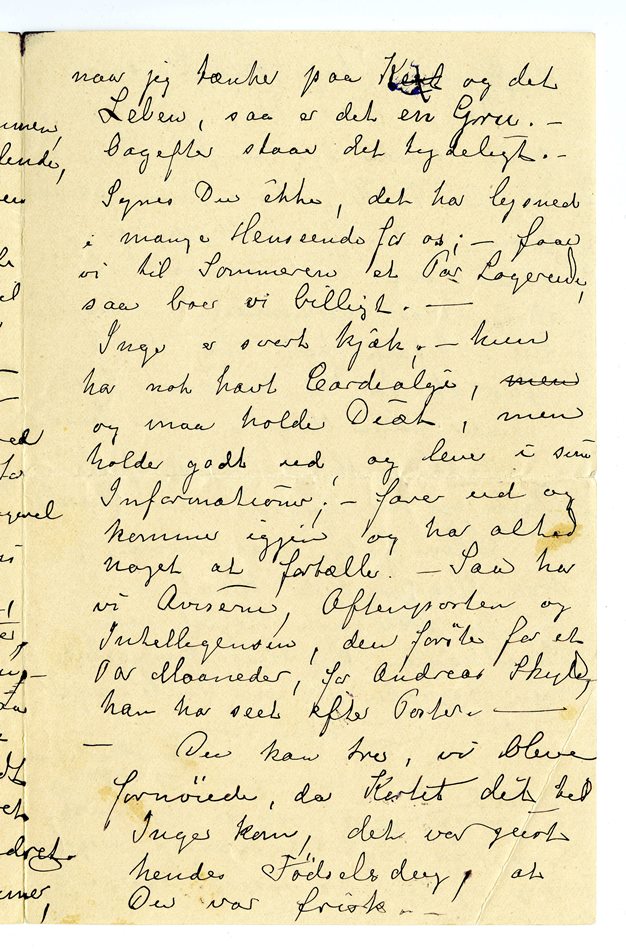 naar jeg tænker paa og det
Leben, saa er det en Gru. –
bagefter staar det tydeligt. –
Synes Du ikke, det har lysned
i mange Henseende for os; – faae
vi til Sommeren et Par Logerende,
saa boer vi billigt. —
Inge er svert kjæk; – hun
har nok havt Cardialgi, men
og maa holde Diæt, men
holder godt ud og lever i sine
Informationer; – farer ud og
kommer igjen og har altid
noget at fortælle. – Saa har
vi Aviserne, Aftenposten og
Intellegensen, den første for et
Par Maaneder, for Andreas Skyld,
han har seet efter Poster. —
— Du kan tro, vi bleve
fornøiede, da Kortet det til
Inger kom, det var just
hendes Fødselsdag, at
Du var frisk. –
mmen,
lende,
ved
for
ret
mmer,